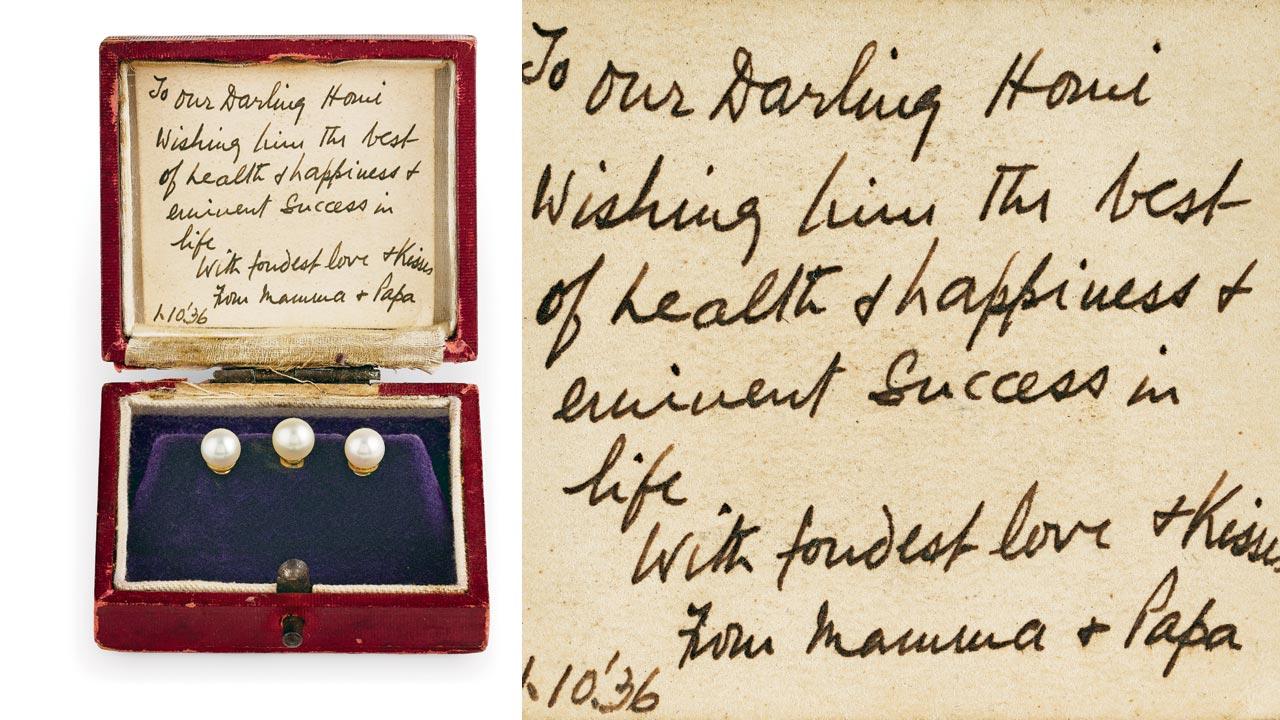 To our Darling Homi
Wishing him the best
of health & happiness &
eminent Success in
life
With fondest love & Kisses
From Mamma & Papa
1.10.'36
To our Darling Homi
Wishing him the best
of health & happiness &
eminent Success in
life
With fondest love & Kisses
From Mamma & Papa
10.'36